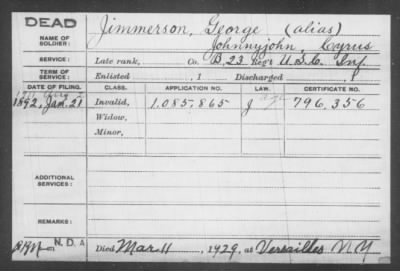 DEAD
NAME OF SOLDIER: Jimmerson, George (alias)
Johnnyjohn, Cyrus
SERVICE: Late rank, Co. B, 23 Reg't U.S.C. Inf.
TERM OF SERVICE: Enlisted , 1 Discharged , 1
DATE OF FILING. CLASS. APPLICATION NO. LAW. CERTIFICATE NO.
1892, Jan. 21 Invalid, 1.085.865 J age 796.356
Widow,
Minor,
ADDITIONAL SERVICES:
REMARKS:
N.D.A Died Mar. 11, 1929, at Versailles N.Y.